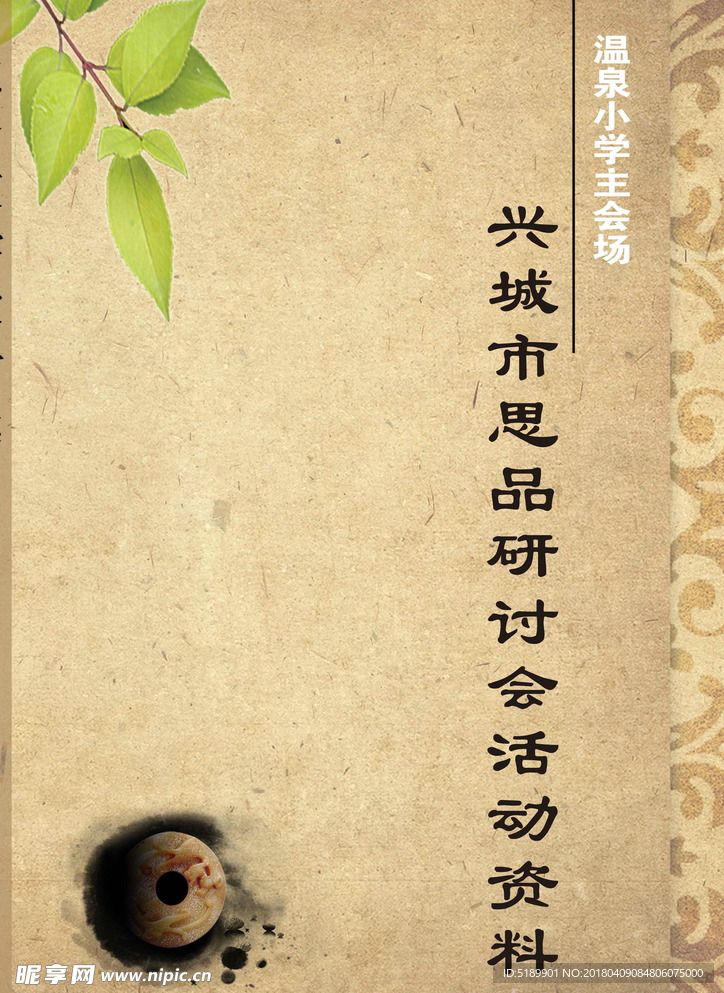 温泉小学主会场
兴城市思品研讨会活动资料
昵享网 www.nipic.cn
ID:5189901 NO:20180409084806075000